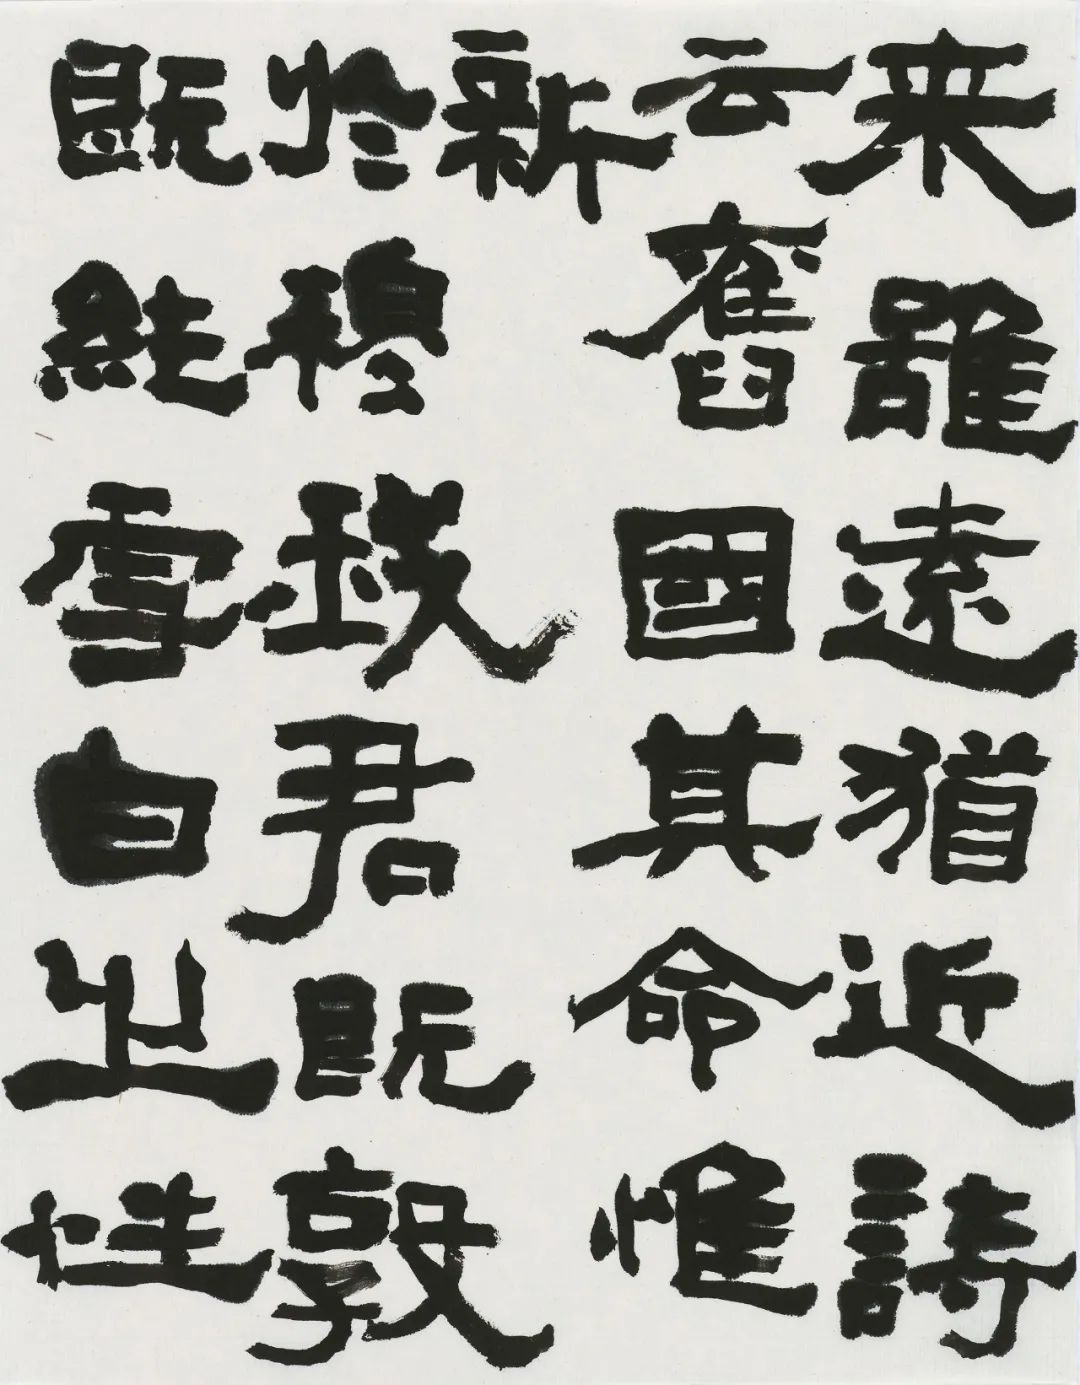 来雖遠猶近詩
云舊國其命惟
新
於穆我君既敦
既純雪白之性